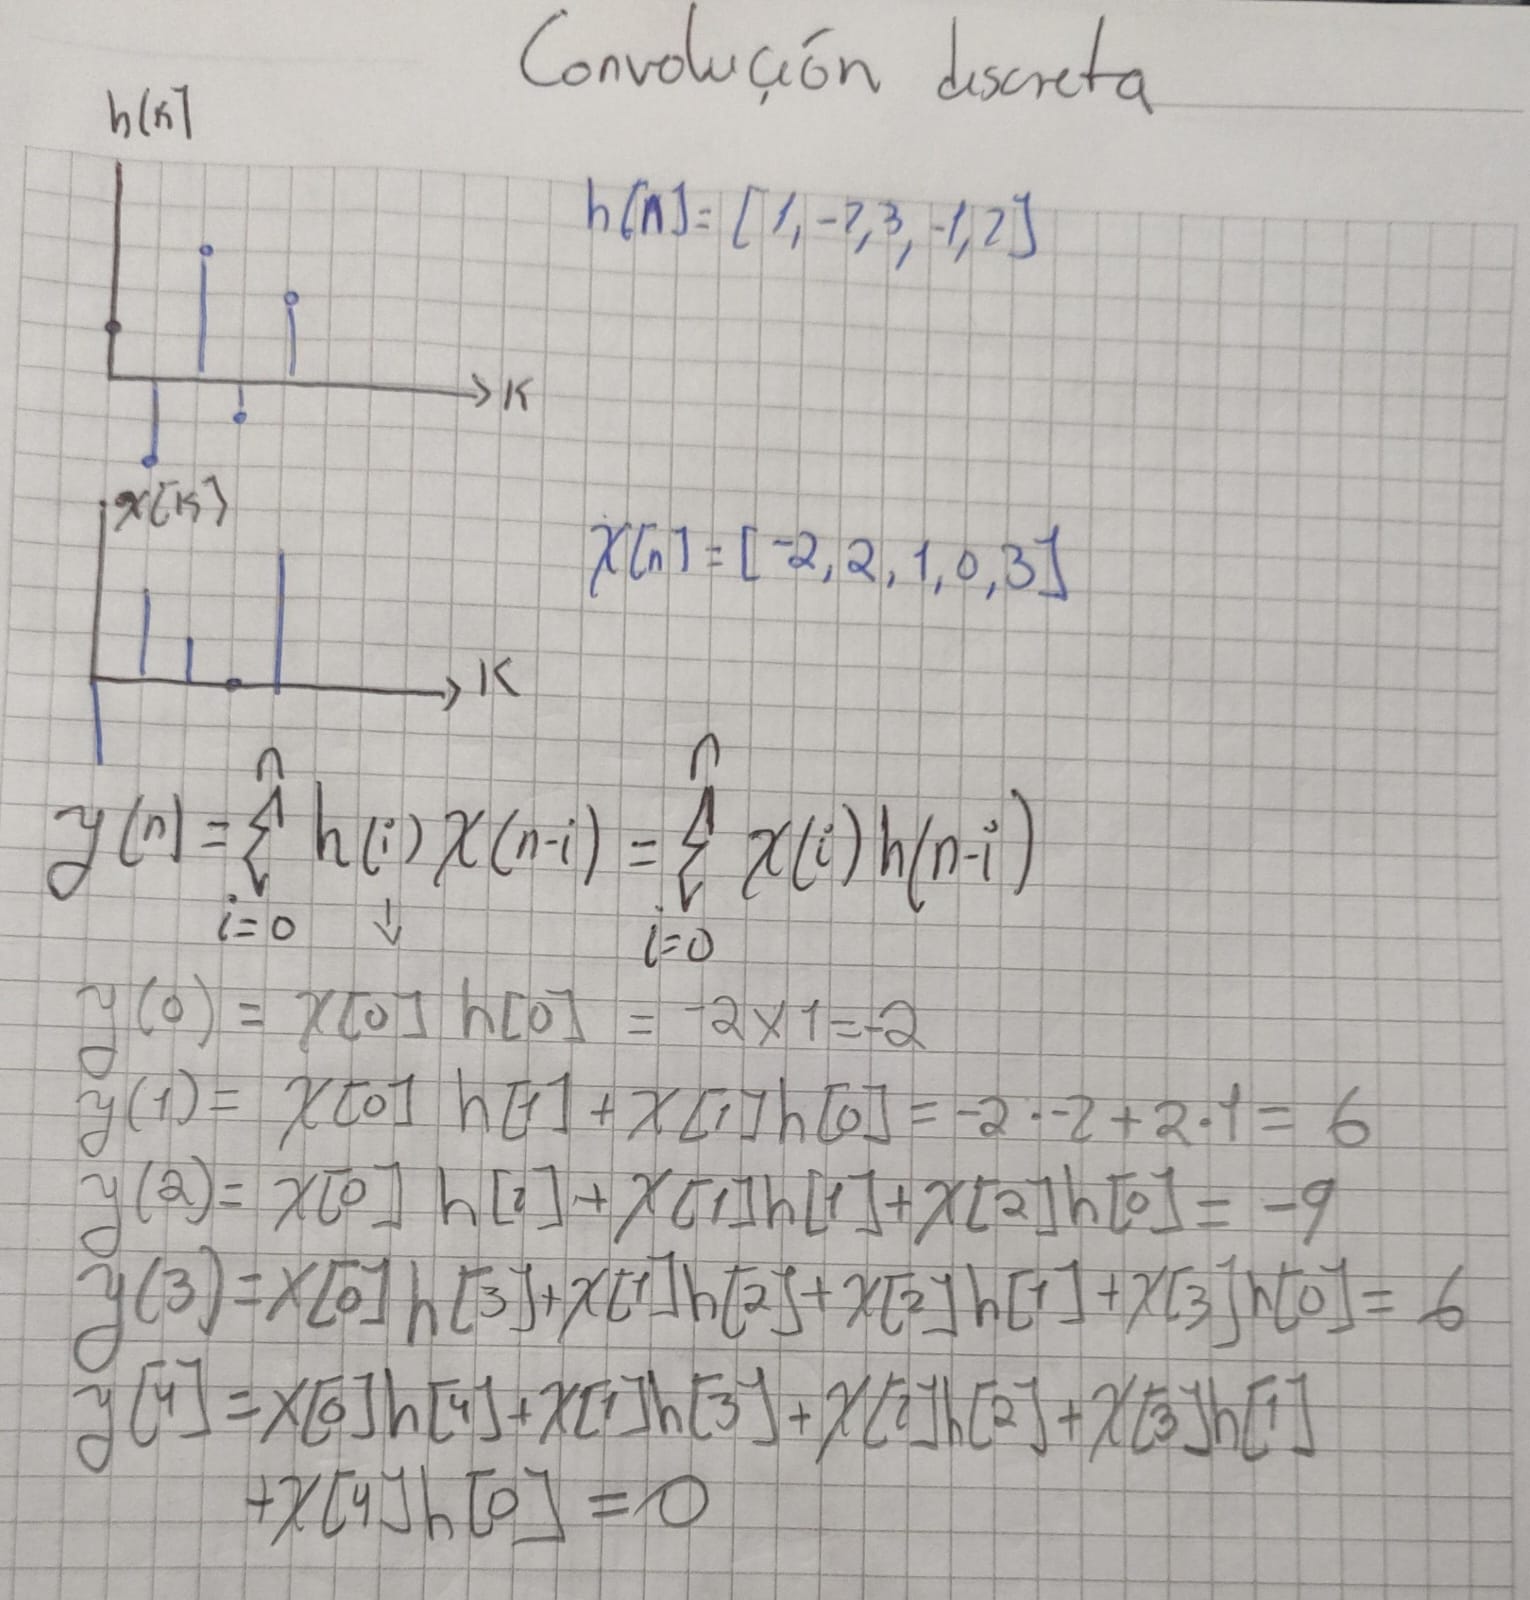 Convolución discreta
h[k]
h[n]=[1,-2,3,-1,2]
K
x[k]
x[n]=[-2,2,1,0,3]
K
n n
y(n)=∑ h(i)x(n-i)=∑ x(i)h(n-i)
i=0 ↓ i=0
y(0)= x[0] h[0] = -2x1=-2
y(1)= x[0] h[1]+x[1]h[0]=-2·-2+2·1=6
y(2)= x[0] h[2]+x[1]h[1]+x[2]h[0]=-9
y(3)=x[0]h[3]+x[1]h[2]+x[2]h[1]+x[3]h[0]=6
y[4]=x[0]h[4]+x[1]h[3]+x[2]h[2]+x[3]h[1]
+x[4]h[0]=0